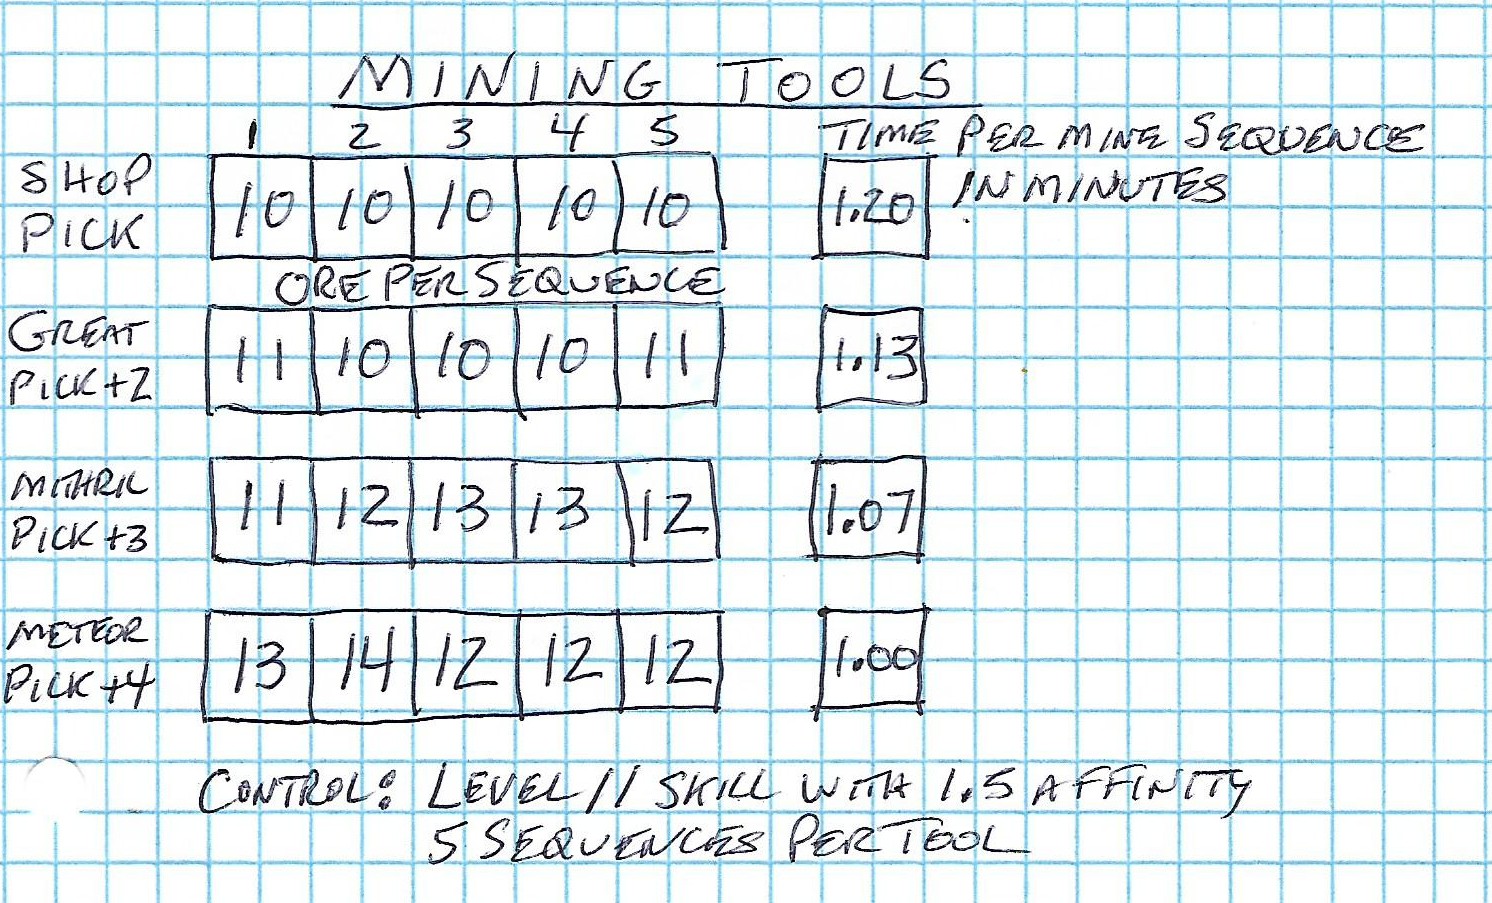 MINING TOOLS
1 2 3 4 5 TIME PER MINE SEQUENCE
SHOP PICK 10 10 10 10 10 1.20 IN MINUTES
ORE PER SEQUENCE
GREAT PICK +2 11 10 10 10 11 1.13
MITHRIL PICK +3 11 12 13 13 12 1.07
METEOR PICK +4 13 14 12 12 12 1.00
CONTROL: LEVEL 11 SKILL WITH 1.5 AFFINITY
5 SEQUENCES PER TOOL